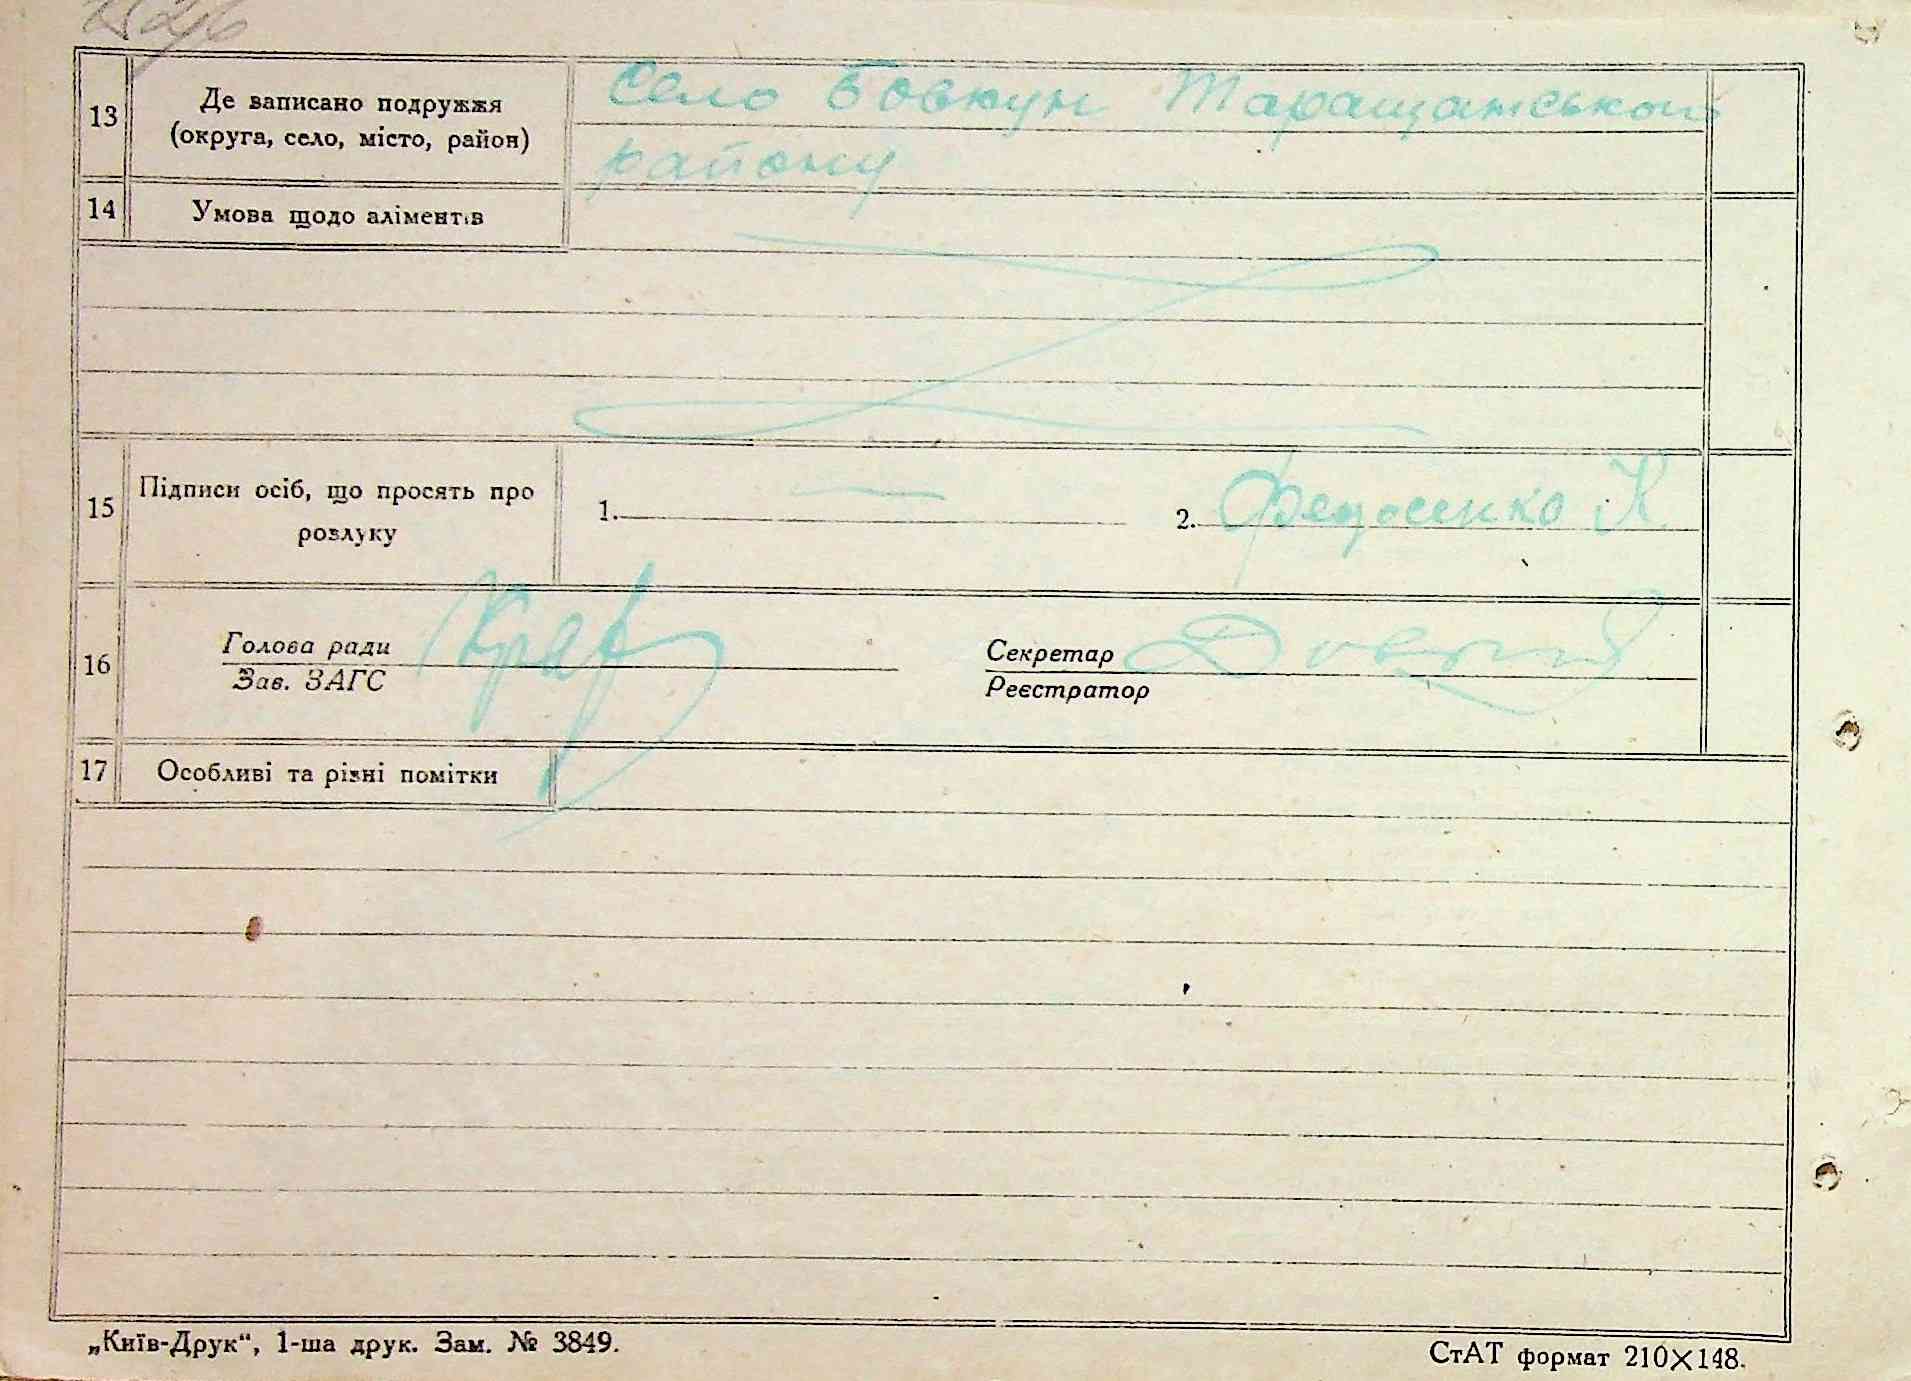 13 Де записано подружжя
(округа, село, місто, район)
Село Бовкун Таращанського
району
14 Умова щодо аліментів
15 Підписи осіб, що просять про
розлуку
1. 2. Федосенко К.
16 Голова ради
Зав. ЗАГС
Секретар
Реєстратор
17 Особливі та різні помітки
„Київ-Друк“, 1-ша друк. Зам. № 3849.
СтАТ формат 210×148.